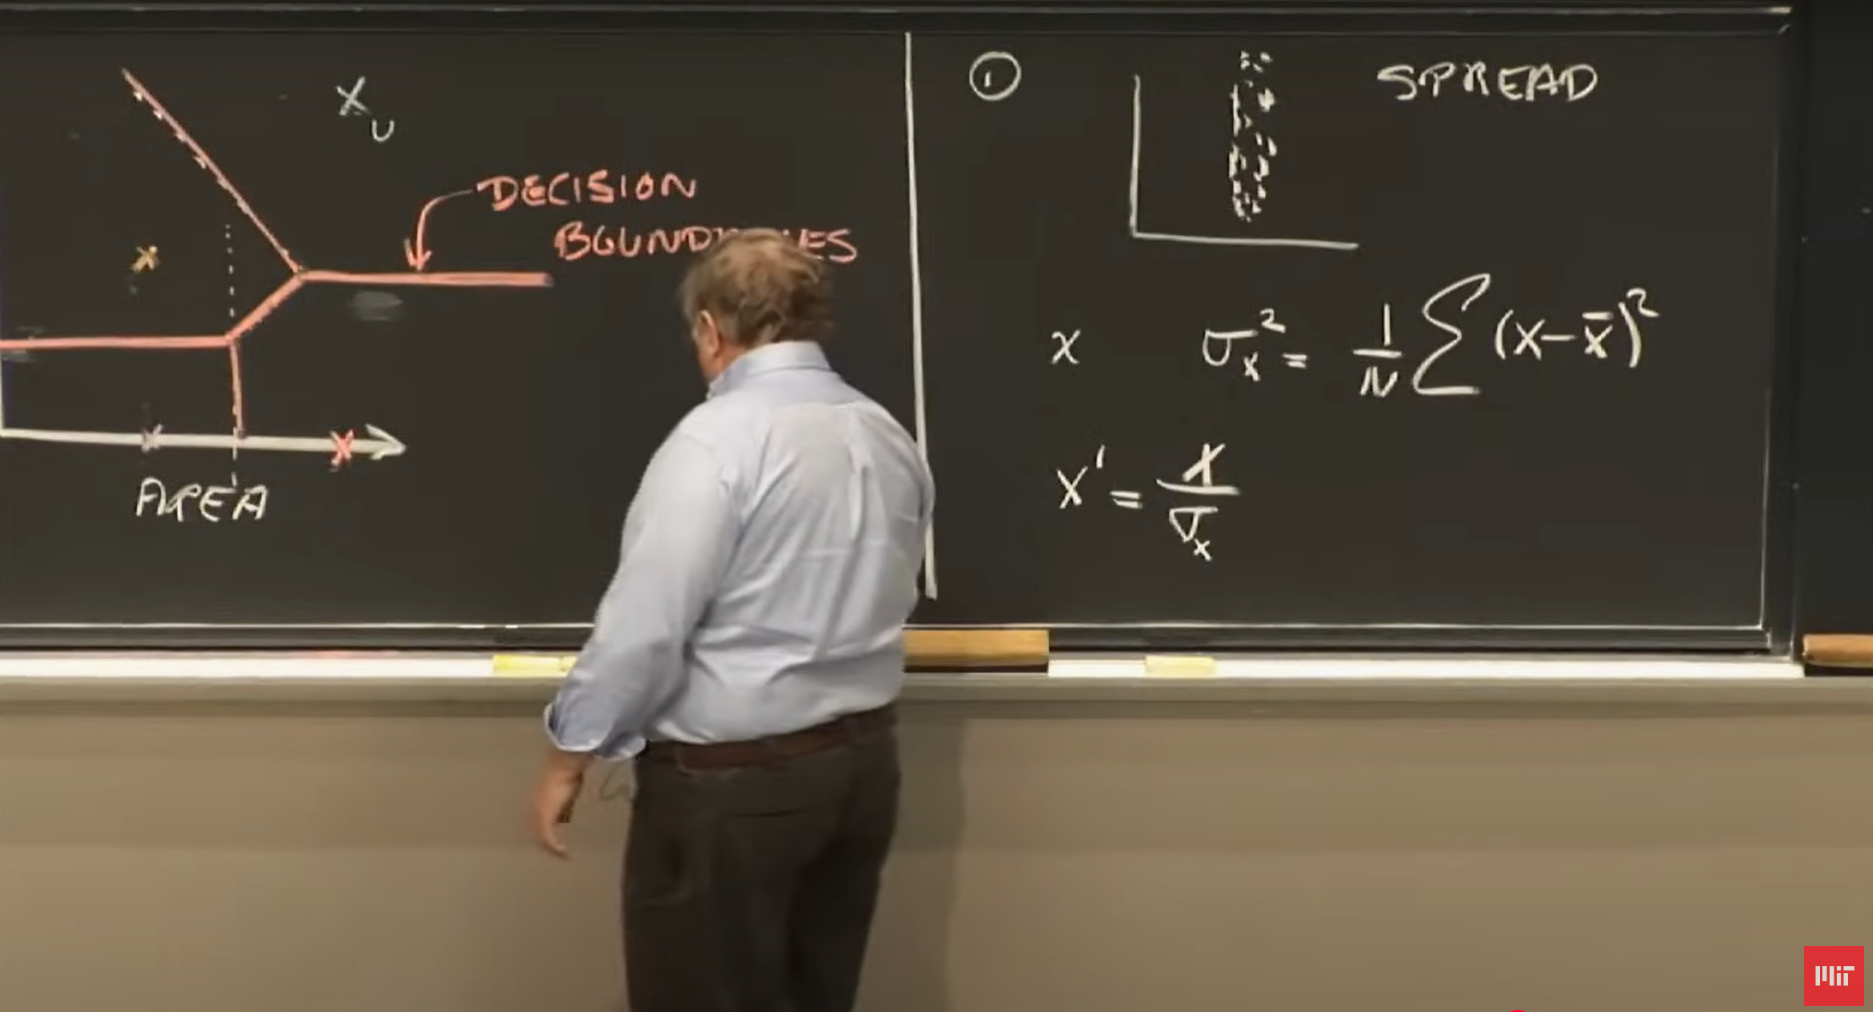 X
U
DECISION
BOUND
IES
AREA
① SPREAD
x σₓ² = 1/N ∑ (x-x̄)²
x' = x/σₓ
MIT